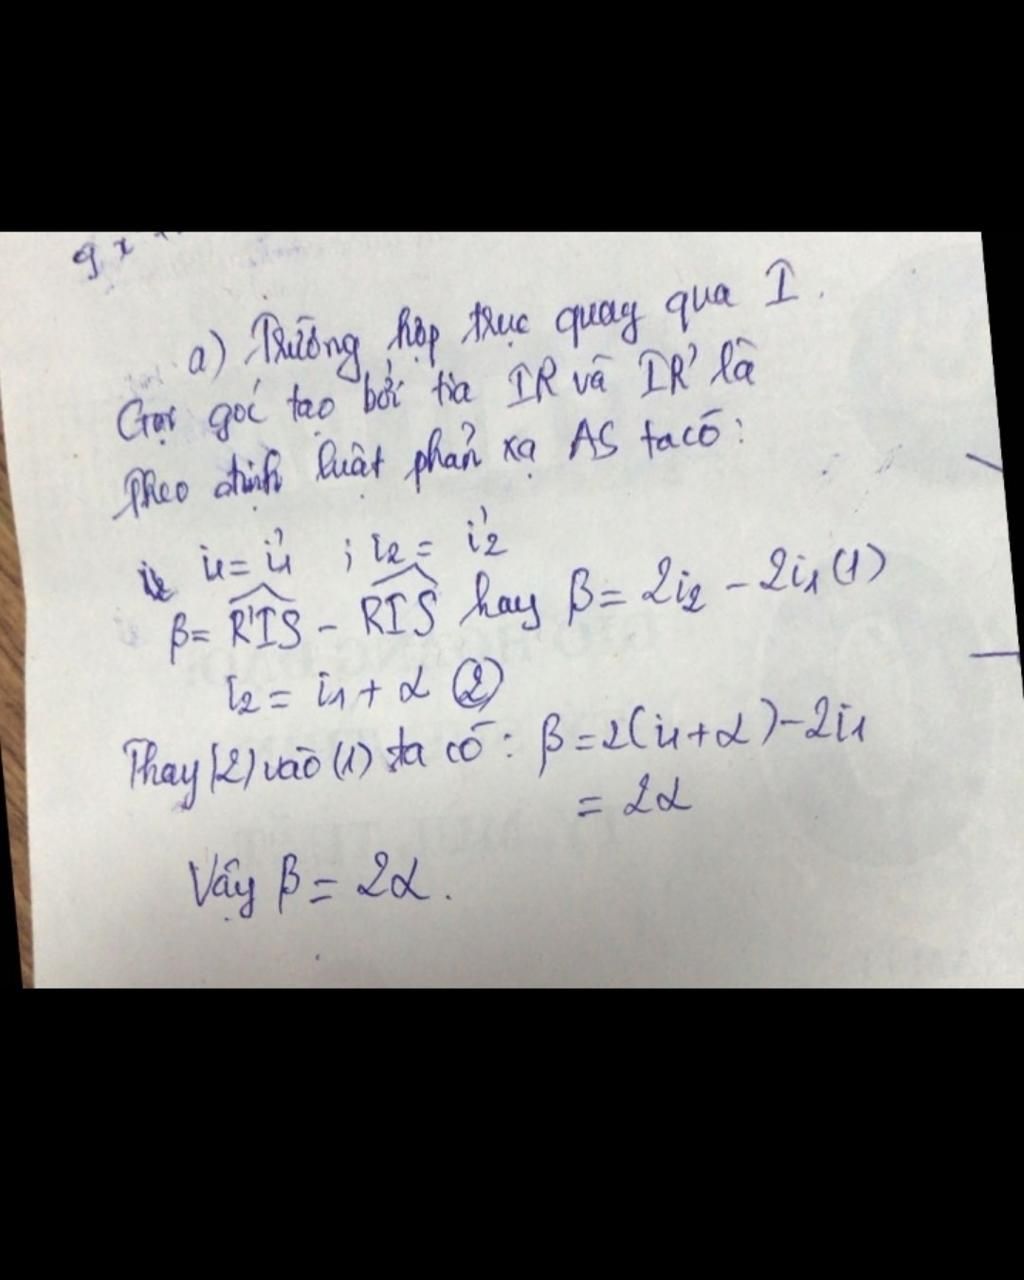 a) Trường hợp trục quay qua I.
Gọi góc tạo bởi tia IR và IR' là
Theo định luật phản xạ AS ta có:
i₁ = i'₁ ; i₂ = i'₂
β = R'IS - RIS hay β = 2i₂ - 2i₁ (1)
i₂ = i₁ + α (2)
Thay (2) vào (1) ta có: β = 2(i₁ + α) - 2i₁
= 2α
Vậy β = 2α.